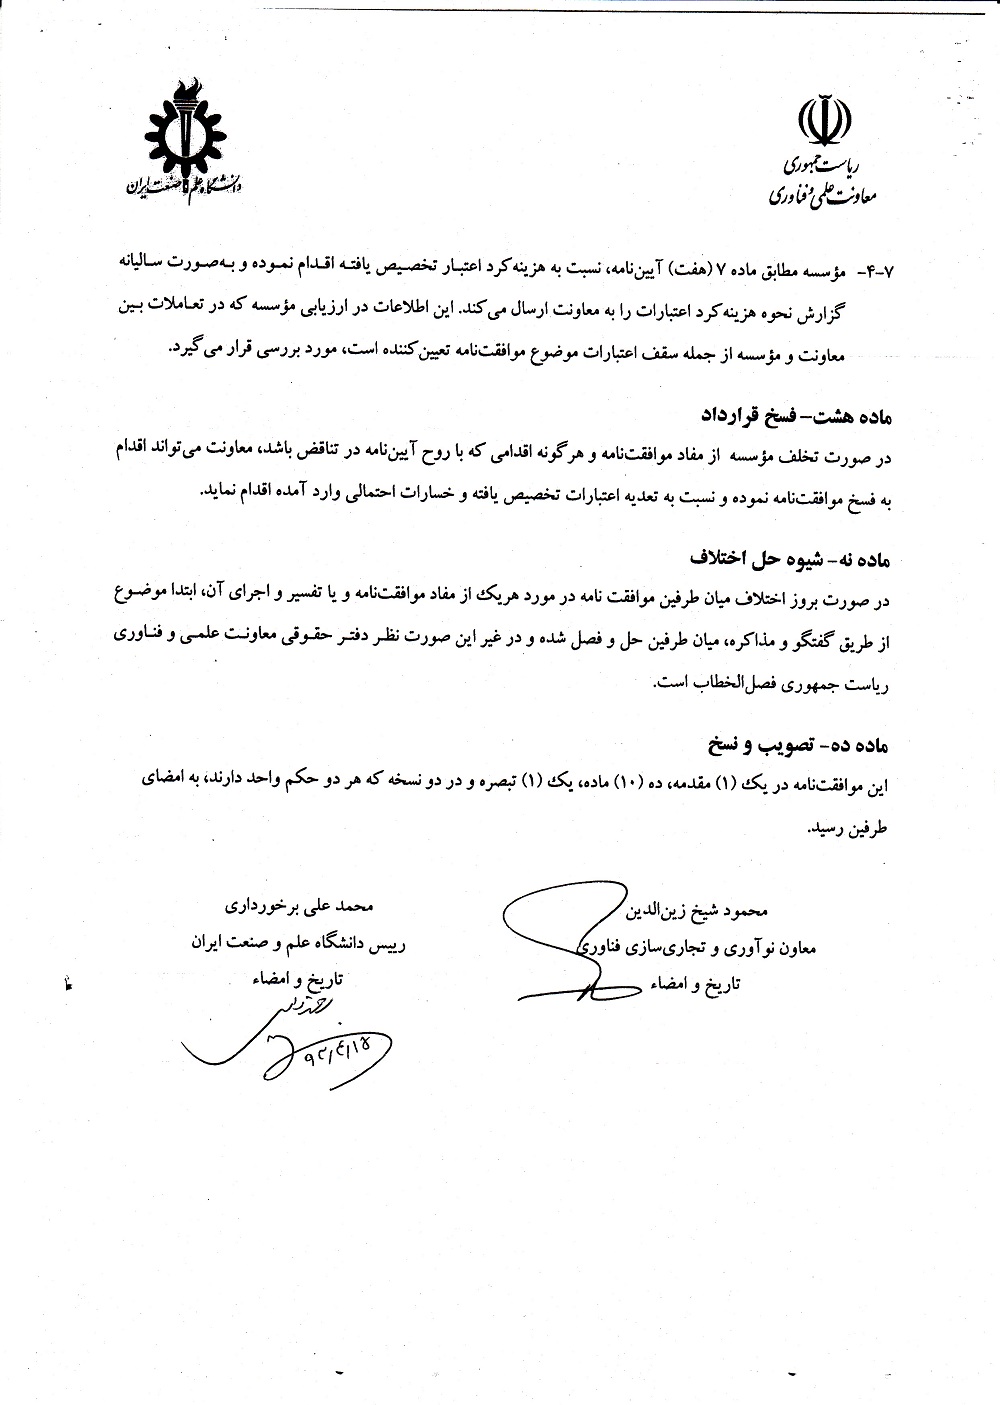 ریاست جمهوری
معاونت علمی و فناوری
دانشگاه علم و صنعت ایران
۴-۷- مؤسسه مطابق ماده ۷ (هفت) آیین‌نامه، نسبت به هزینه‌کرد اعتبار تخصیص یافته اقدام نموده و به‌صورت سالیانه
گزارش نحوه هزینه‌کرد اعتبارات را به معاونت ارسال می‌کند. این اطلاعات در ارزیابی مؤسسه که در تعاملات بین
معاونت و مؤسسه از جمله سقف اعتبارات موضوع موافقت‌نامه تعیین‌کننده است، مورد بررسی قرار می‌گیرد.
ماده هشت- فسخ قرارداد
در صورت تخلف مؤسسه از مفاد موافقت‌نامه و هرگونه اقدامی که با روح آیین‌نامه در تناقض باشد، معاونت می‌تواند اقدام
به فسخ موافقت‌نامه نموده و نسبت به تعدیه اعتبارات تخصیص یافته و خسارات احتمالی وارد آمده اقدام نماید.
ماده نه- شیوه حل اختلاف
در صورت بروز اختلاف میان طرفین موافقت نامه در مورد هریک از مفاد موافقت‌نامه و یا تفسیر و اجرای آن، ابتدا موضوع
از طریق گفتگو و مذاکره، میان طرفین حل و فصل شده و در غیر این صورت نظر دفتر حقوقی معاونت علمی و فناوری
ریاست جمهوری فصل‌الخطاب است.
ماده ده- تصویب و نسخ
این موافقت‌نامه در یک (۱) مقدمه، ده (۱۰) ماده، یک (۱) تبصره و در دو نسخه که هر دو حکم واحد دارند، به امضای
طرفین رسید.
محمود شیخ زین‌الدین
معاون نوآوری و تجاری‌سازی فناوری
تاریخ و امضاء
محمد علی برخورداری
رییس دانشگاه علم و صنعت ایران
تاریخ و امضاء
۹۳/۴/۱۵